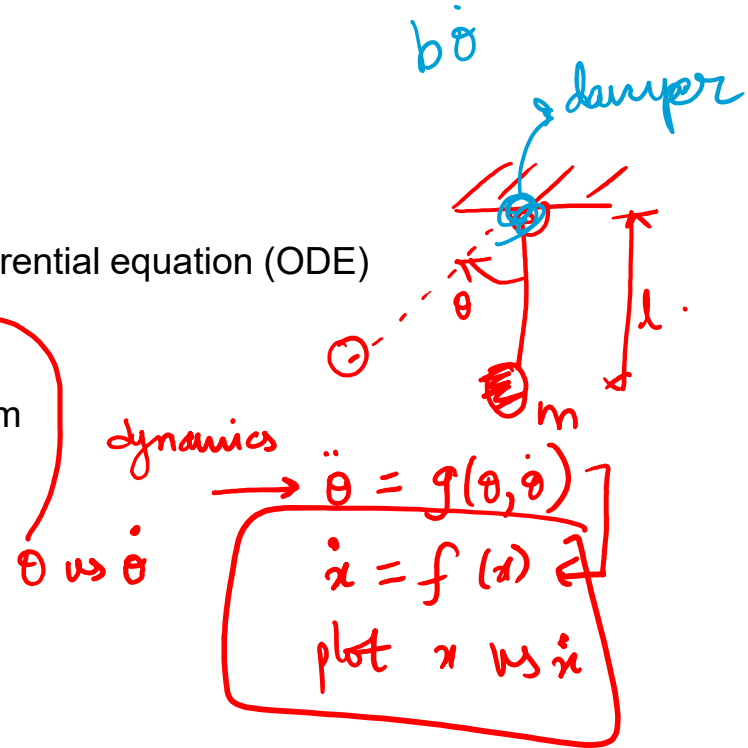 bθ̇
damper
rential equation (ODE)
θ
l
m
m
dynamics
θ̈ = g(θ, θ̇)
θ vs θ̇
ẋ = f(x)
plot x vs ẋ